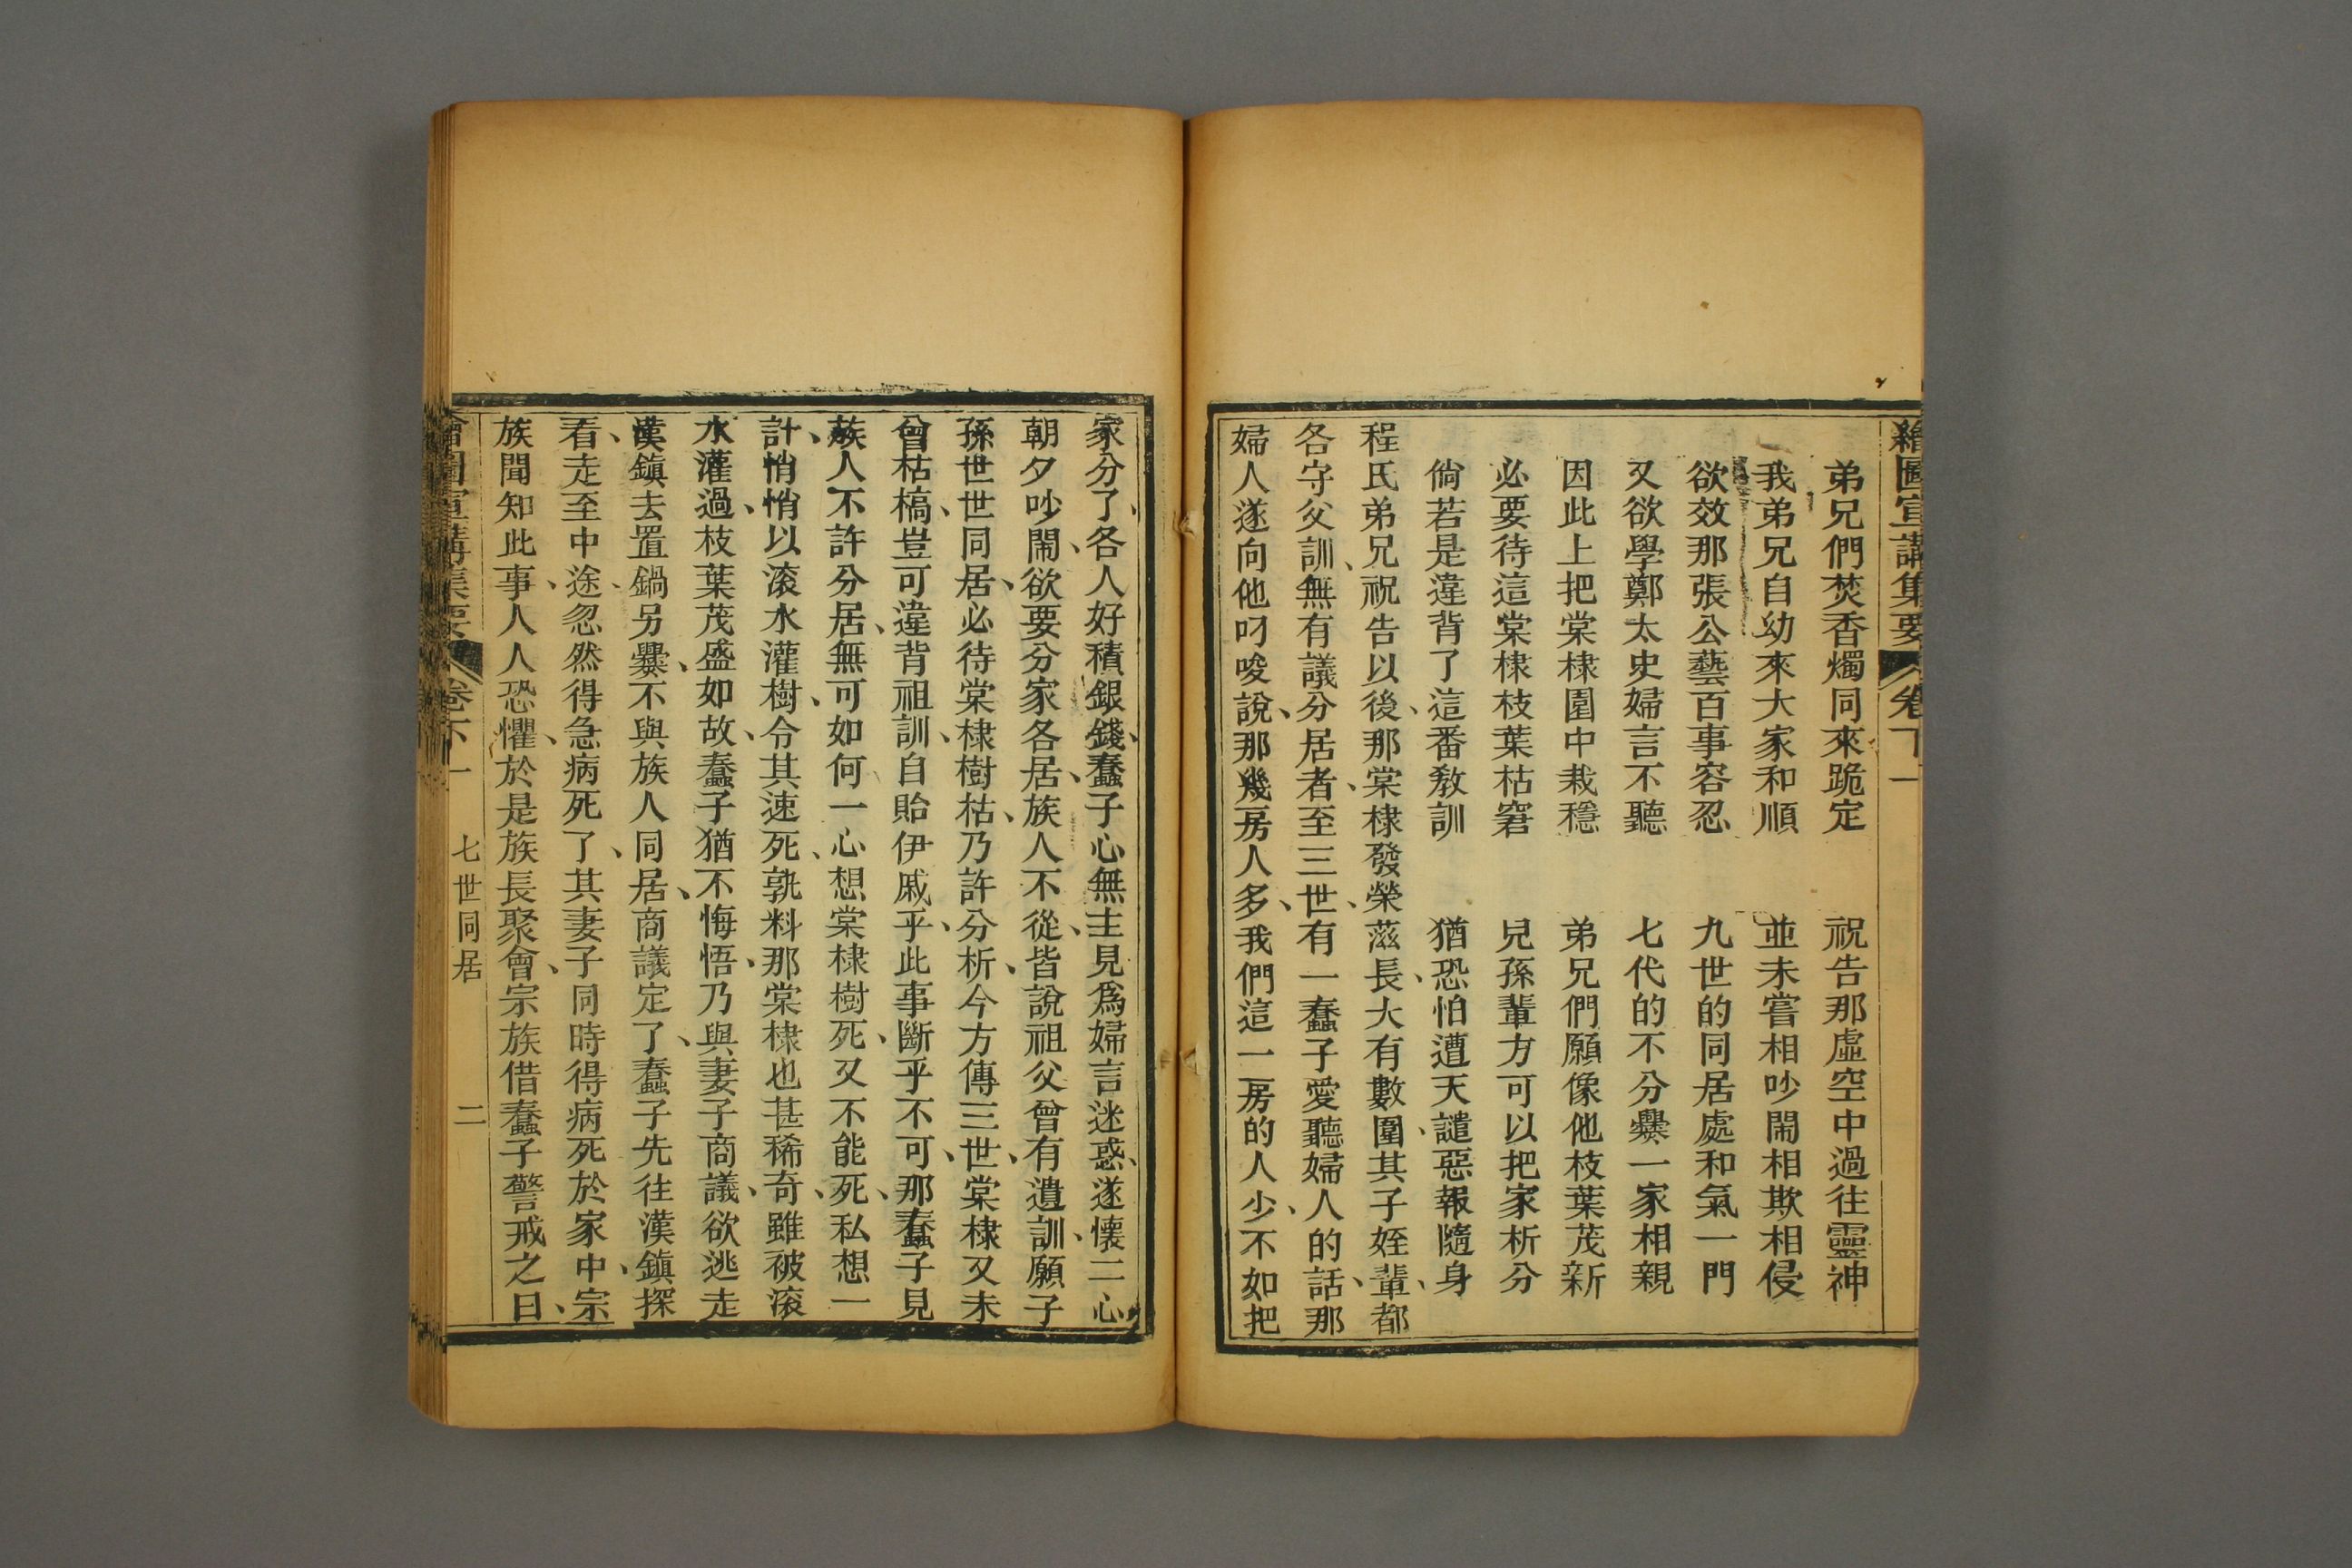 繪圖宣講集要 卷下一
弟兄們焚香燭同來跪定 祝告那虛空中過往靈神
我弟兄自幼來大家和順 並未嘗相吵鬧相欺相侵
欲效那張公藝百事容忍 九世的同居處和氣一門
又欲學鄭太史婦言不聽 七代的不分爨一家相親
因此上把棠棣園中栽穩 弟兄們願像他枝葉茂新
必要待這棠棣枝葉枯窘 兒孫輩方可以把家析分
倘若是違背了這番教訓 猶恐怕遭天譴惡報隨身
程氏弟兄祝告以後、那棠棣發榮滋長、大有數圍、其子姪輩、都
各守父訓、無有議分居者、至三世、有一蠢子愛聽婦人的話、那
婦人遂向他叼唆說、那幾房人多、我們這一房的人少、不如把
家分了、各人好積銀錢、蠢子心無主見為婦言迷惑、遂懷二心、
朝夕吵鬧、欲要分家各居、族人不從、皆說祖父曾有遺訓、願子
孫世世同居、必待棠棣樹枯、乃許分析、今方傳三世、棠棣又未
曾枯槁、豈可違背祖訓、自貽伊戚乎、此事斷乎不可、那蠢子見
族人不許分居、無可如何一心想棠棣樹死、又不能死、私想一
計、悄悄以滾水灌樹、令其速死、孰料那棠棣也甚稀奇、雖被滾
水灌過、枝葉茂盛如故、蠢子猶不悔悟、乃與妻子商議、欲逃走
漢鎮去置鍋另爨、不與族人同居、商議定了、蠢子先往漢鎮探
看、走至中途、忽然得急病死了、其妻子同時得病死於家中、宗
族聞知此事、人人恐懼、於是族長聚會、宗族借蠢子警戒之曰、
繪圖宣講集要 卷下一 七世同居 二